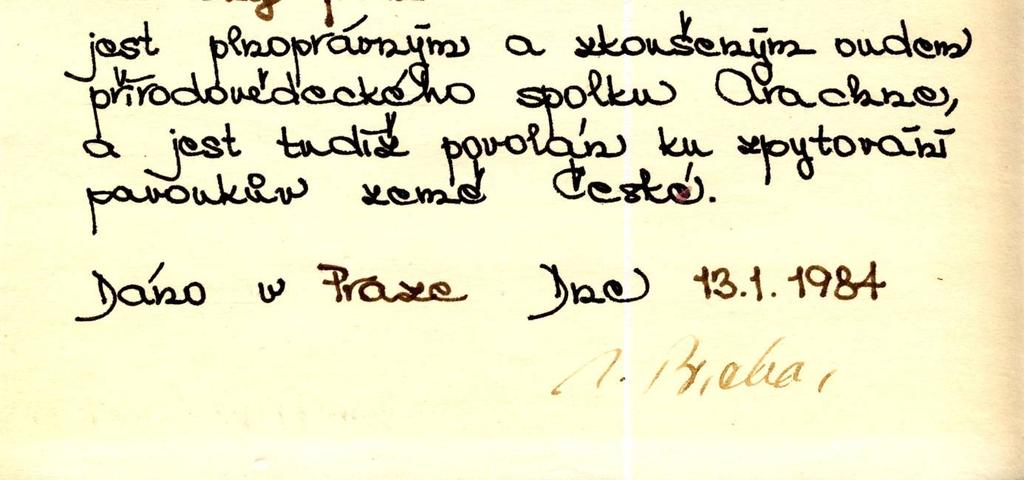 jest plnoprávným a zkoušeným oudem
přírodovědeckého spolku Arachne,
a jest tudíž povolán ku zpytování
pavoukův země České.
Dáno w Praze Dne 13.1.1984